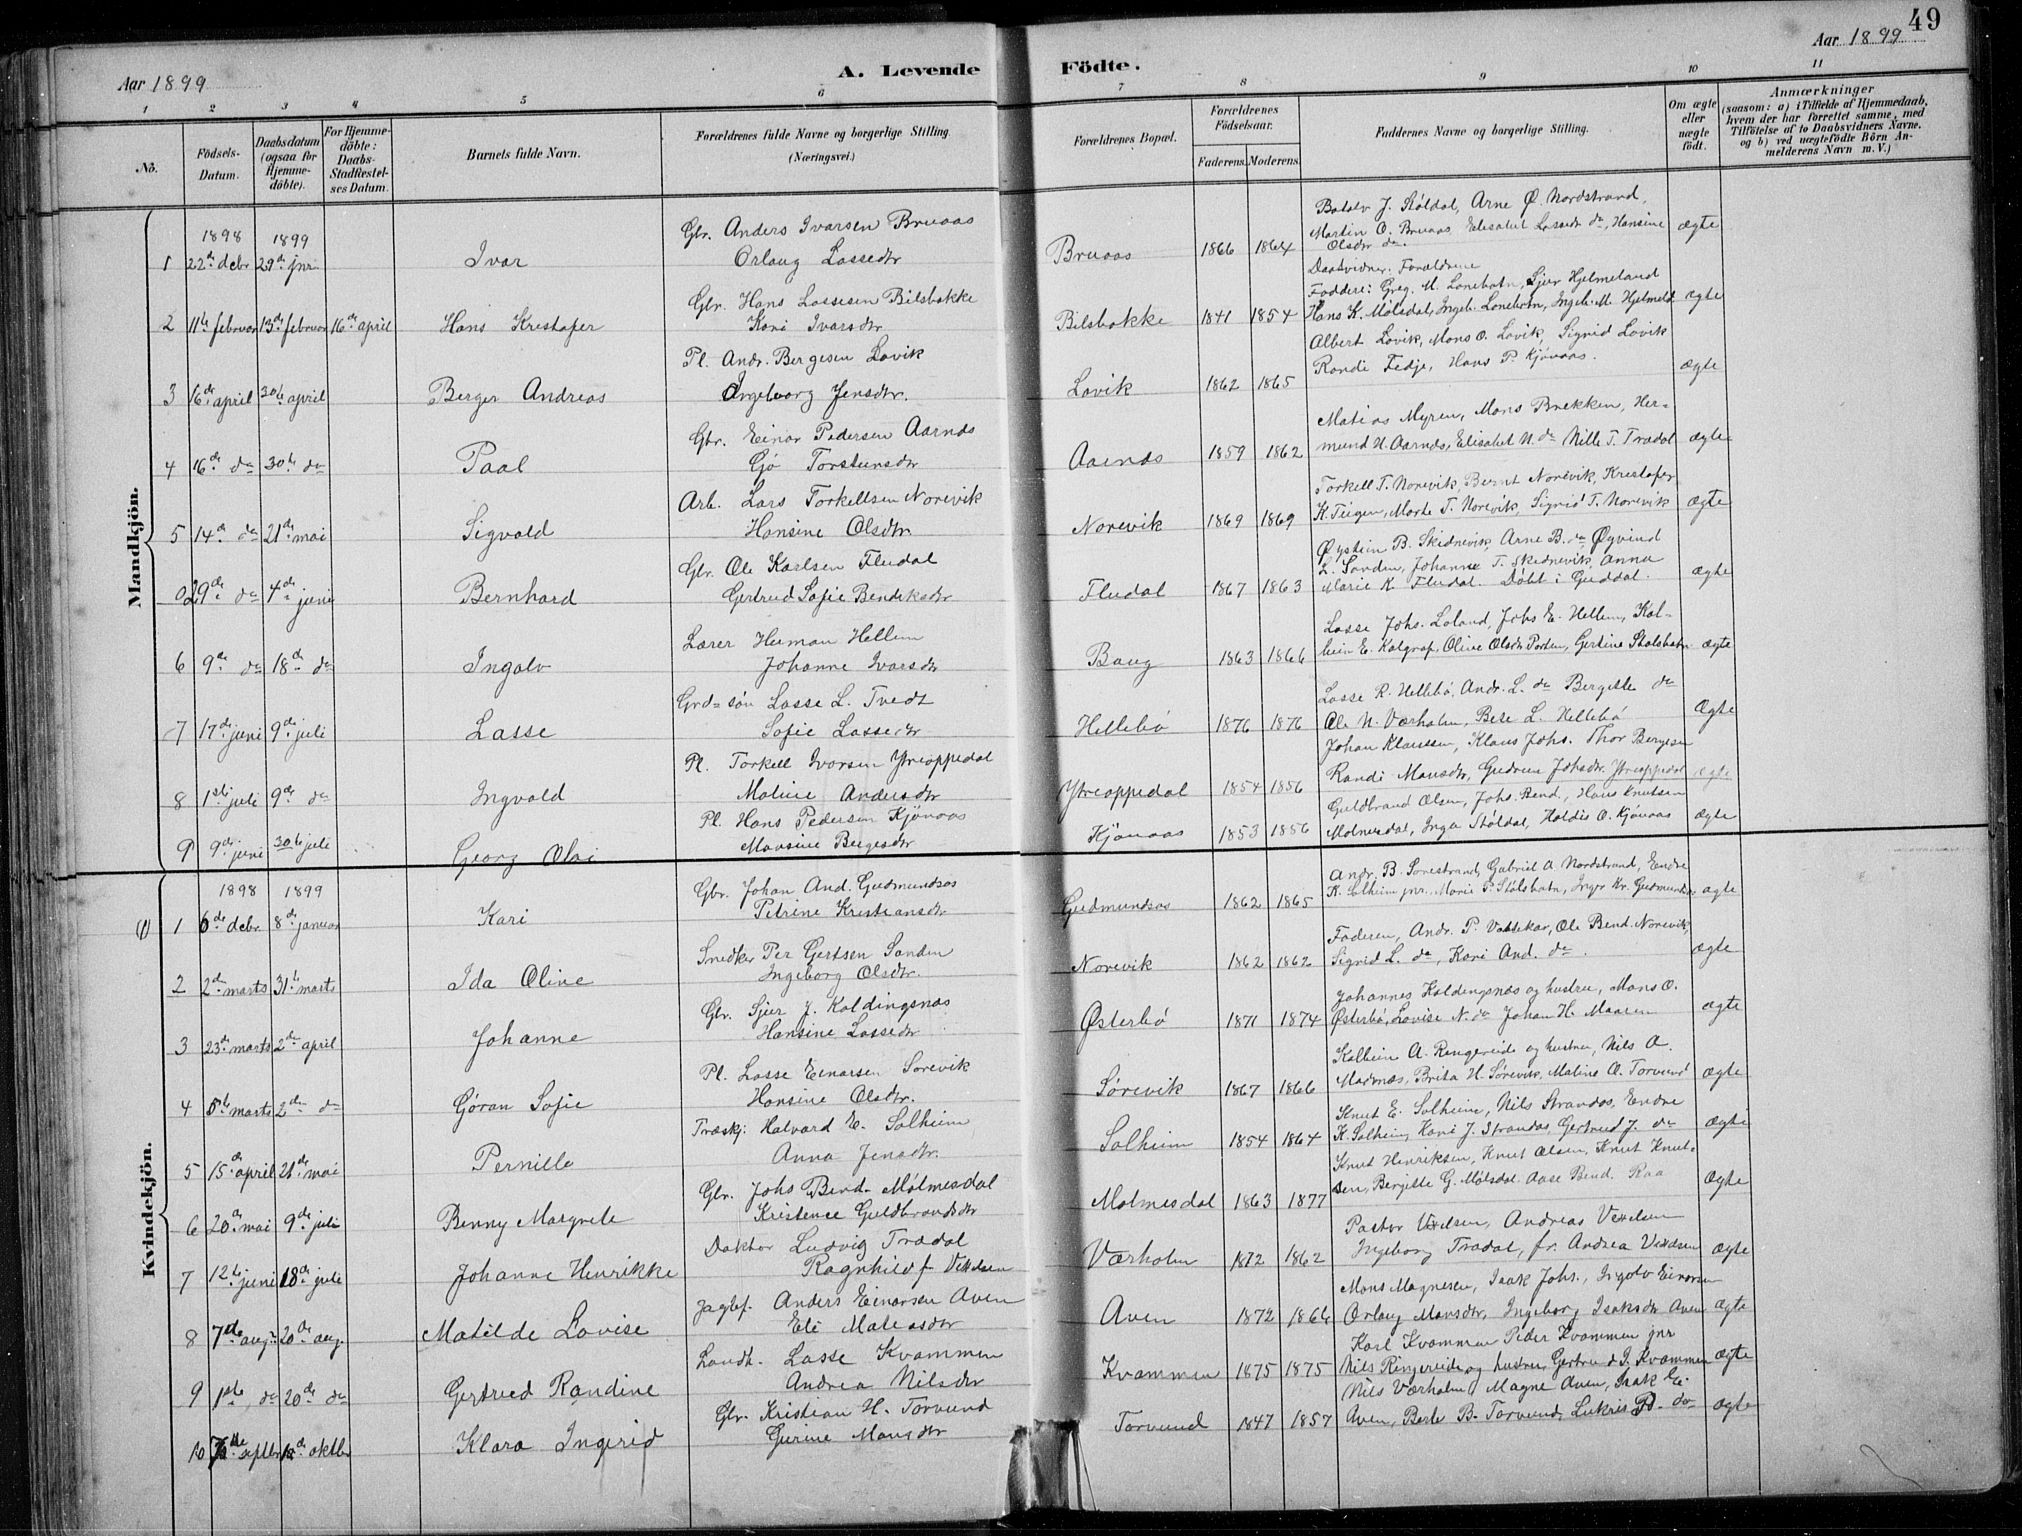 49
Aar 1899
A. Levende Födte.
Aar 1899
1 2 3 4 5 6 7 8 9 10 11
No.
Födsels-Datum.
Daabsdatum (ogsaa for Hjemme-döbte).
For Hjemme-döbte: Daabs-Stadfæstel-ses Datum.
Barnets fulde Navn.
Forældrenes fulde Navne og borgerlige Stilling. (Næringsvei.)
Forældrenes Bopæl.
Forældrenes Födselsaar.
Faderens. Moderens.
Faddernes Navne og borgerlige Stilling.
Om ægte eller uægte födt.
Anmærkninger
(saasom: a) i Tilfælde af Hjemmedaab, hvem der har forrettet samme, med Tilföielse af to Daabsvidners Navne, og b) ved uægtefödte Börn An-melderens Navn m. V.)
Mandkjön.
1898 1899
1 22de debr 29de jnr Ivar
Gbr. Anders Ivarsen Bruaas
Orlaug Lassedtr
Bruaas 1866 1864
Botolv J. Støldal, Arne Ø. Nordstrand,
Martin O. Bruaas, Elisabet Lassedr do, Hansine
Olsdtr do.
ægte
2 11te februar 13de februar 16de april Hans Kristofer
Gbr. Hans Lassesen Bilsbakke
Kari Ivarsdtr
Bilsbakke 1841 1854
Daabsvidner: Forældrene
Faddere: Greg. M. Lonebotn, Sjur Hjelmeland
Hans K. Mølsdal, Ingeb. Lonebotn, Ingeb. M. Hjelmeld
ægte
3 16de april 30te april Berger Andreas
Pl. Andr. Bergesen Lavik
Ingeborg Jensdtr.
Lavik 1862 1865
Albert Lavik, Mons O. Lavik, Sigrid Lavik
Randi Fedje, Hans P. Kjönaas.
ægte
4 16de do 30te do Paal
Gbr. Einar Pedersen Aarnæs
Gjø Torsteinsdtr
Aarnæs 1859 1862
Matias Myren, Mons Brekken, Her-
mund H. Aarnæs, Elisabet N. do Nille T. Trædal
ægte
5 14de do 21de mai Sigvald
Arb. Lars Torkellsen Norevik
Hansine Olsdtr.
Norevik 1869 1869
Torkell T. Norevik, Bernt Norevik, Kristofer
K. Teigen, Marte T. Norevik, Sigrid T. Norevik
ægte
0 29de do 4de juni Bernhard
Gbr. Ole Karlsen Fludal
Gertrud Sofie Bendiksdtr
Fludal 1867 1863
Øystein B. Skidnevik, Arne B. do Øyvind
L. Sanden, Johanne T. Skidnevik, Anna
Marie K. Fludal. Döbt i Guddal.
ægte
6 9de do 18de do Ingolv
Lærer Herman Hellem
Johanne Ivarsdtr
Baug 1863 1866
Lasse Johs. Loland, Johs E. Hellem, Kol-
bein E. Kalgraf, Oline Olsdtr Porten, Gertine Stølsbotn
ægte
7 17de juni 9de juli Lasse
Grd-søn Lasse L. Tvedt
Sofie Lassedtr
Hellebö 1876 1876
Lasse R. Hellebö, Andr. L. do Bergitte do
Ole N. Værholm, Bese L. Hellebö
Ægte
8 1ste juli 9de do Ingvald
Pl. Torkell Ivarsen Ytreoppedal
Maline Andersdtr
Ytreoppedal 1854 1856
Johan Klausen, Klaus Johs. Thor Bergesen
Randi Monsdtr, Gudrun Johsdtr. Ytreoppedal
ægte
9 9de juni 30te juli Georg Olai
Pl. Hans Pedersen Kjönaas
Monsine Bergesdtr
Kjönaas 1853 1856
Guldbrand Olsen, Johs. Bend., Hans Knutsen
Molmesdal, Inga Stöldal, Holdis O. Kjönaas
ægte
Kvindekjön.
1898 1899
(1) 1 6de debr. 8de januar Kari
Gbr. Johan And. Gudmundsæs
Petrine Kristiansdtr
Gudmundsæs 1862 1865
Andr. B. Torestrand, Gabriel A. Nordstrand, Endre
K. Solheim jnr., Marie P. Stølsbotn, Inger Kr. Gudmunds
ægte
2 2den marts 31te marts Ida Oline
Snedker Per Gertsen Sanden
Ingeborg Olsdtr.
Norevik 1862 1862
Faderen, Andr. P. Vattekar, Ole Bend. Norevik,
Sigrid L. do, Kari And. do.
ægte
3 23de marts 2den april Johanne
Gbr. Sjur J. Koldingsnæs
Hansine Lassedtr
Østerbö 1871 1874
Johannes Koldingsnæs og hustru, Mons O.
Østerbö, Lovise N. do Johan H. Maaren
ægte
4 5te marts 2den do Göran Sofie
Pl. Lasse Einarsen Sørevik
Hansine Olsdtr.
Sørevik 1867 1866
Kolbein A. Ringereide og hustru, Nils A.
Madnæs, Brita H. Sørevik, Maline O. Torvund
ægte
5 15de april 21de mai Pernille
Træskj: Halvard E. Solheim
Anna Jensdtr.
Solheim 1854 1864
Knut E. Solheim, Nils Strandos, Endre
K. Solheim, Kari J. Strandos, Gertrud J. do
ægte
6 20de mai 9de juli Benny Margrete
Gbr. Johs Bend. Mölmesdal
Kristence Guldbrandsdtr
Molmesdal 1863 1877
Knut Henriksen, Knut Olsen, Knut Knut-
sen, Bergitte G. Mölsdal. Aase Bend. Raa
Ægte
7 12te juni 18de juli Johanne Henrikke
Doktor Ludvig Trædal
Ragnhild f. Vexelsen
Værholm 1872 1862
Pastor Vexelsen, Andreas Vexelsen
Ingeborg Trædal, fr. Andrea Vexelsen
ægte
8 7de aug. 20de aug. Matilde Lovise
Jagtef. Anders Einarsen Aven
Eli Matiasdtr
Aven 1872 1864
Mons Magnesen, Isak Johs., Ingolv Einarsen
Orlaug Monsdtr, Ingeborg Isaksdtr Aven
ægte
9 1ste do 20de do Gertrud Randine
Landh. Lasse Kvammen
Andrea Nilsdtr
Kvammen 1875 1875
Karl Kvammen Peder Kvammen jnr
Nils Ringereide og hustru, Gertrud J. Kvammen
ægte
10 septbr okttbr Klara Ingerid
Gbr. Kristian H. Torvund
Gurine Monsdtr
Torvund 1847 1857
Nils Værholm, Magne Aven, Isak E.
Aven, Berte B. Torvund, Lukris P. do
ægte